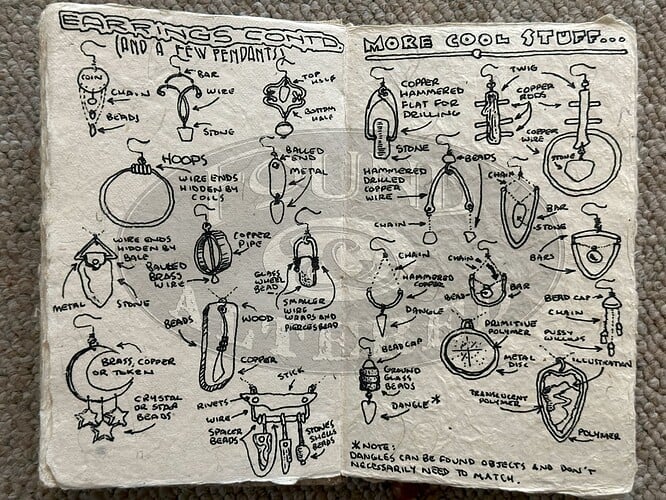 EARRINGS CONT'D.
(AND A FEW PENDANTS)
COIN
CHAIN
BEADS
BAR
WIRE
STONE
TOP HALF
BOTTOM HALF
HOOPS
WIRE ENDS
HIDDEN BY
COILS
BALLED
END
METAL
WIRE ENDS
HIDDEN BY
BALE
BALLED
BRASS
WIRE
COPPER
PIPE
METAL
STONE
GLASS
WHEEL
BEAD
SMALLER
WIRE
WRAPS AND
PIERCES BEAD
BEADS
WOOD
COPPER
BRASS, COPPER
OR TOKEN
CRYSTAL
OR STAR
BEADS
STICK
RIVETS
WIRE
SPACER
BEADS
STONES
SHELLS
BEADS
MORE COOL STUFF...
COPPER
HAMMERED
FLAT FOR
DRILLING
STONE
TWIG
COPPER
RODS
COPPER
WIRE
STONE
BEADS
HAMMERED
DRILLED
COPPER
WIRE
CHAIN
CHAIN
BAR
STONE
BARS
CHAIN
HAMMERED
COPPER
DANGLE
CHAIN
BEAD
BAR
BEAD CAP
CHAIN
PUSSY
WILLOWS
PRIMITIVE
POLYMER
METAL
DISC
BEAD CAP
GROUND
GLASS
BEADS
DANGLE*
ILLUSTRATION
TRANSLUCENT
POLYMER
POLYMER
*NOTE:
DANGLES CAN BE FOUND OBJECTS AND DON'T
NECESSARILY NEED TO MATCH.